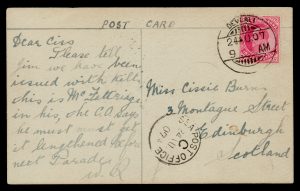 POST CARD
Dear Ciss
Please tell
Jim we have been
issued with kilts
this is Mc
in his, the C.O. says
he must get
it lengthened before
next Parade
Miss Cissie Burns
3 Montague Street
Edinburgh
Scotland
AM
POST OFFICE